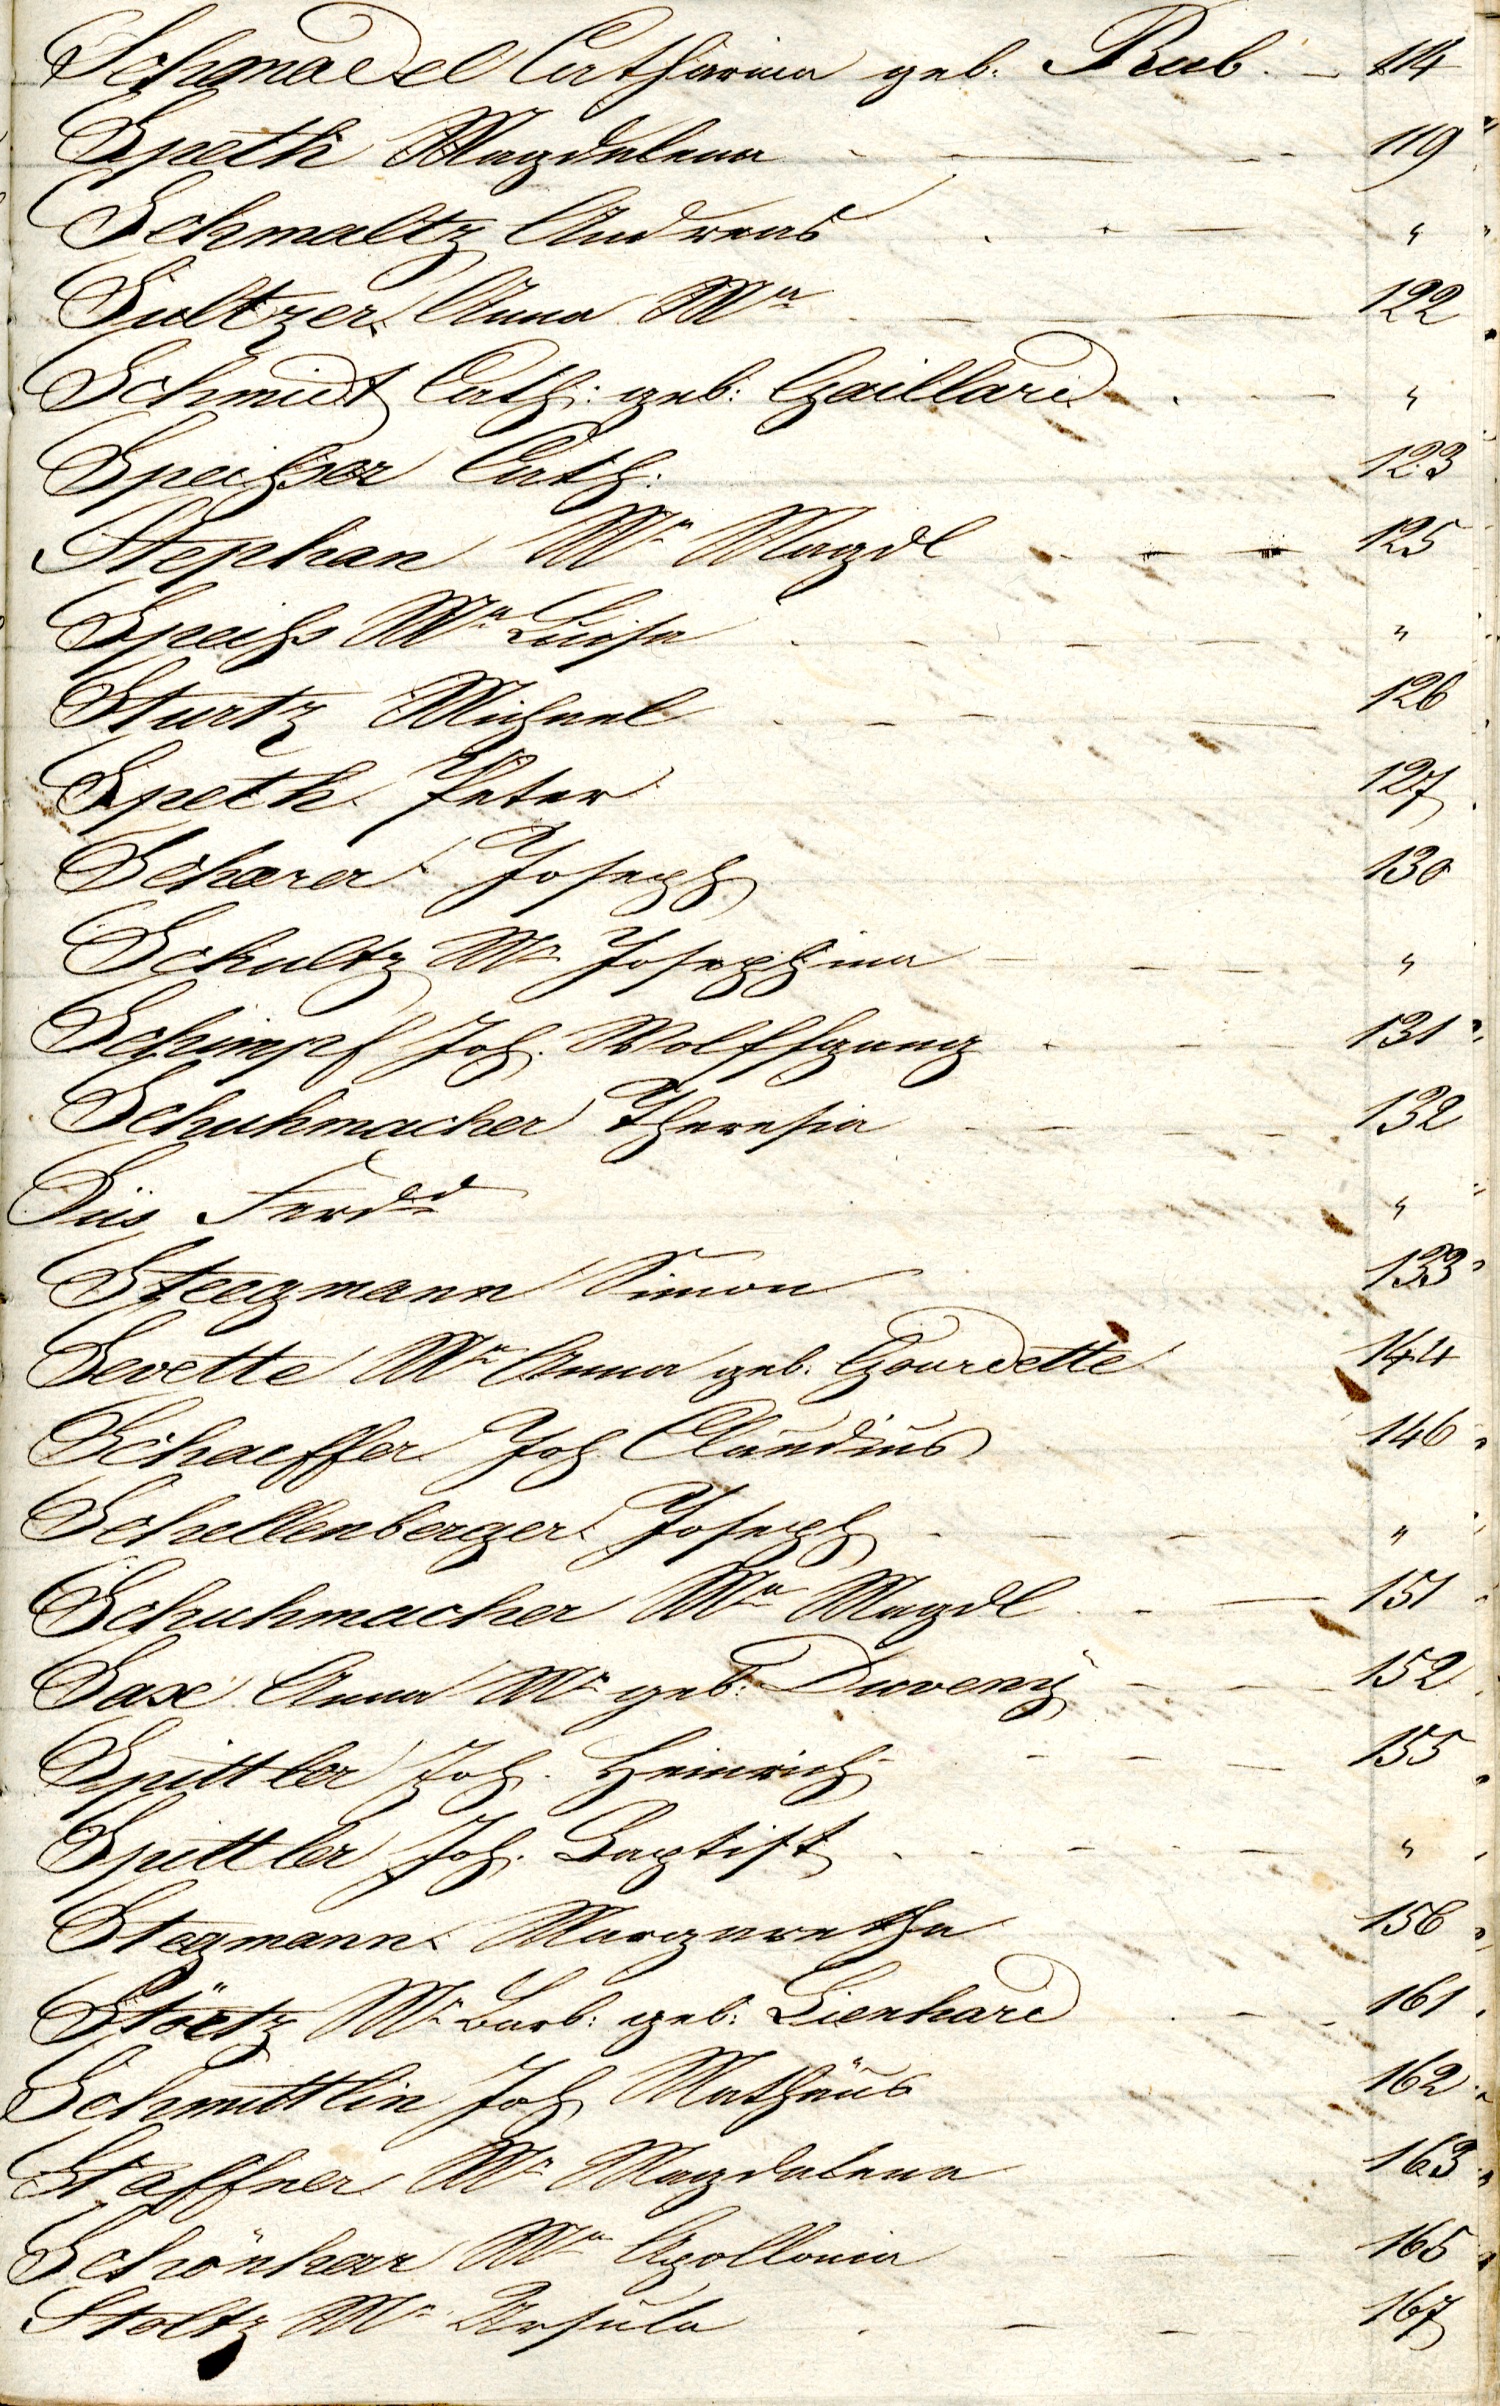 Schmadel Catharina geb. Rub. — 114
Speth Magdalena - — - - 119
Schmaltz Andreas . . — "
Sultzer Anna Ma . — — 122
Schmidt Cath: geb: Gaillard . - — "
Speicher Cath: 123
Stephan Ma Magdl . - - 125
Speichs Ma Luisa . - - - - "
Sturtz Michael . - - — 126
Speth Peter 127
Scherer Joseph 130
Schultz Ma Josephina - - - - "
Schimpf Joh. Wolffgang . - - - 131
Schuhmacher Theresia - - - - 132
Süs Ferdd "
Steegmann Simon 133
Sevette Ma Anna geb. Gourdette 144
Schaeffer Joh Claudius 146
Schellenberger Joseph . - - - "
Schuhmacher Ma Magdl . - — 151
Sax Anna Ma geb: Duveny - - - 152
Spittler Joh. Heinrich - - - 155
Spittler Joh. Baptist . . - - - "
Stegmann Margaretha 156
Stöetz Ma Barb: geb: Lienhard . - - 161
Schmittlin Joh Mathäus 162
Staffner Ma Magdalena 163
Schönherr Ma Apollonia - - - 165
Stoltz Ma Ursula . - - - 167